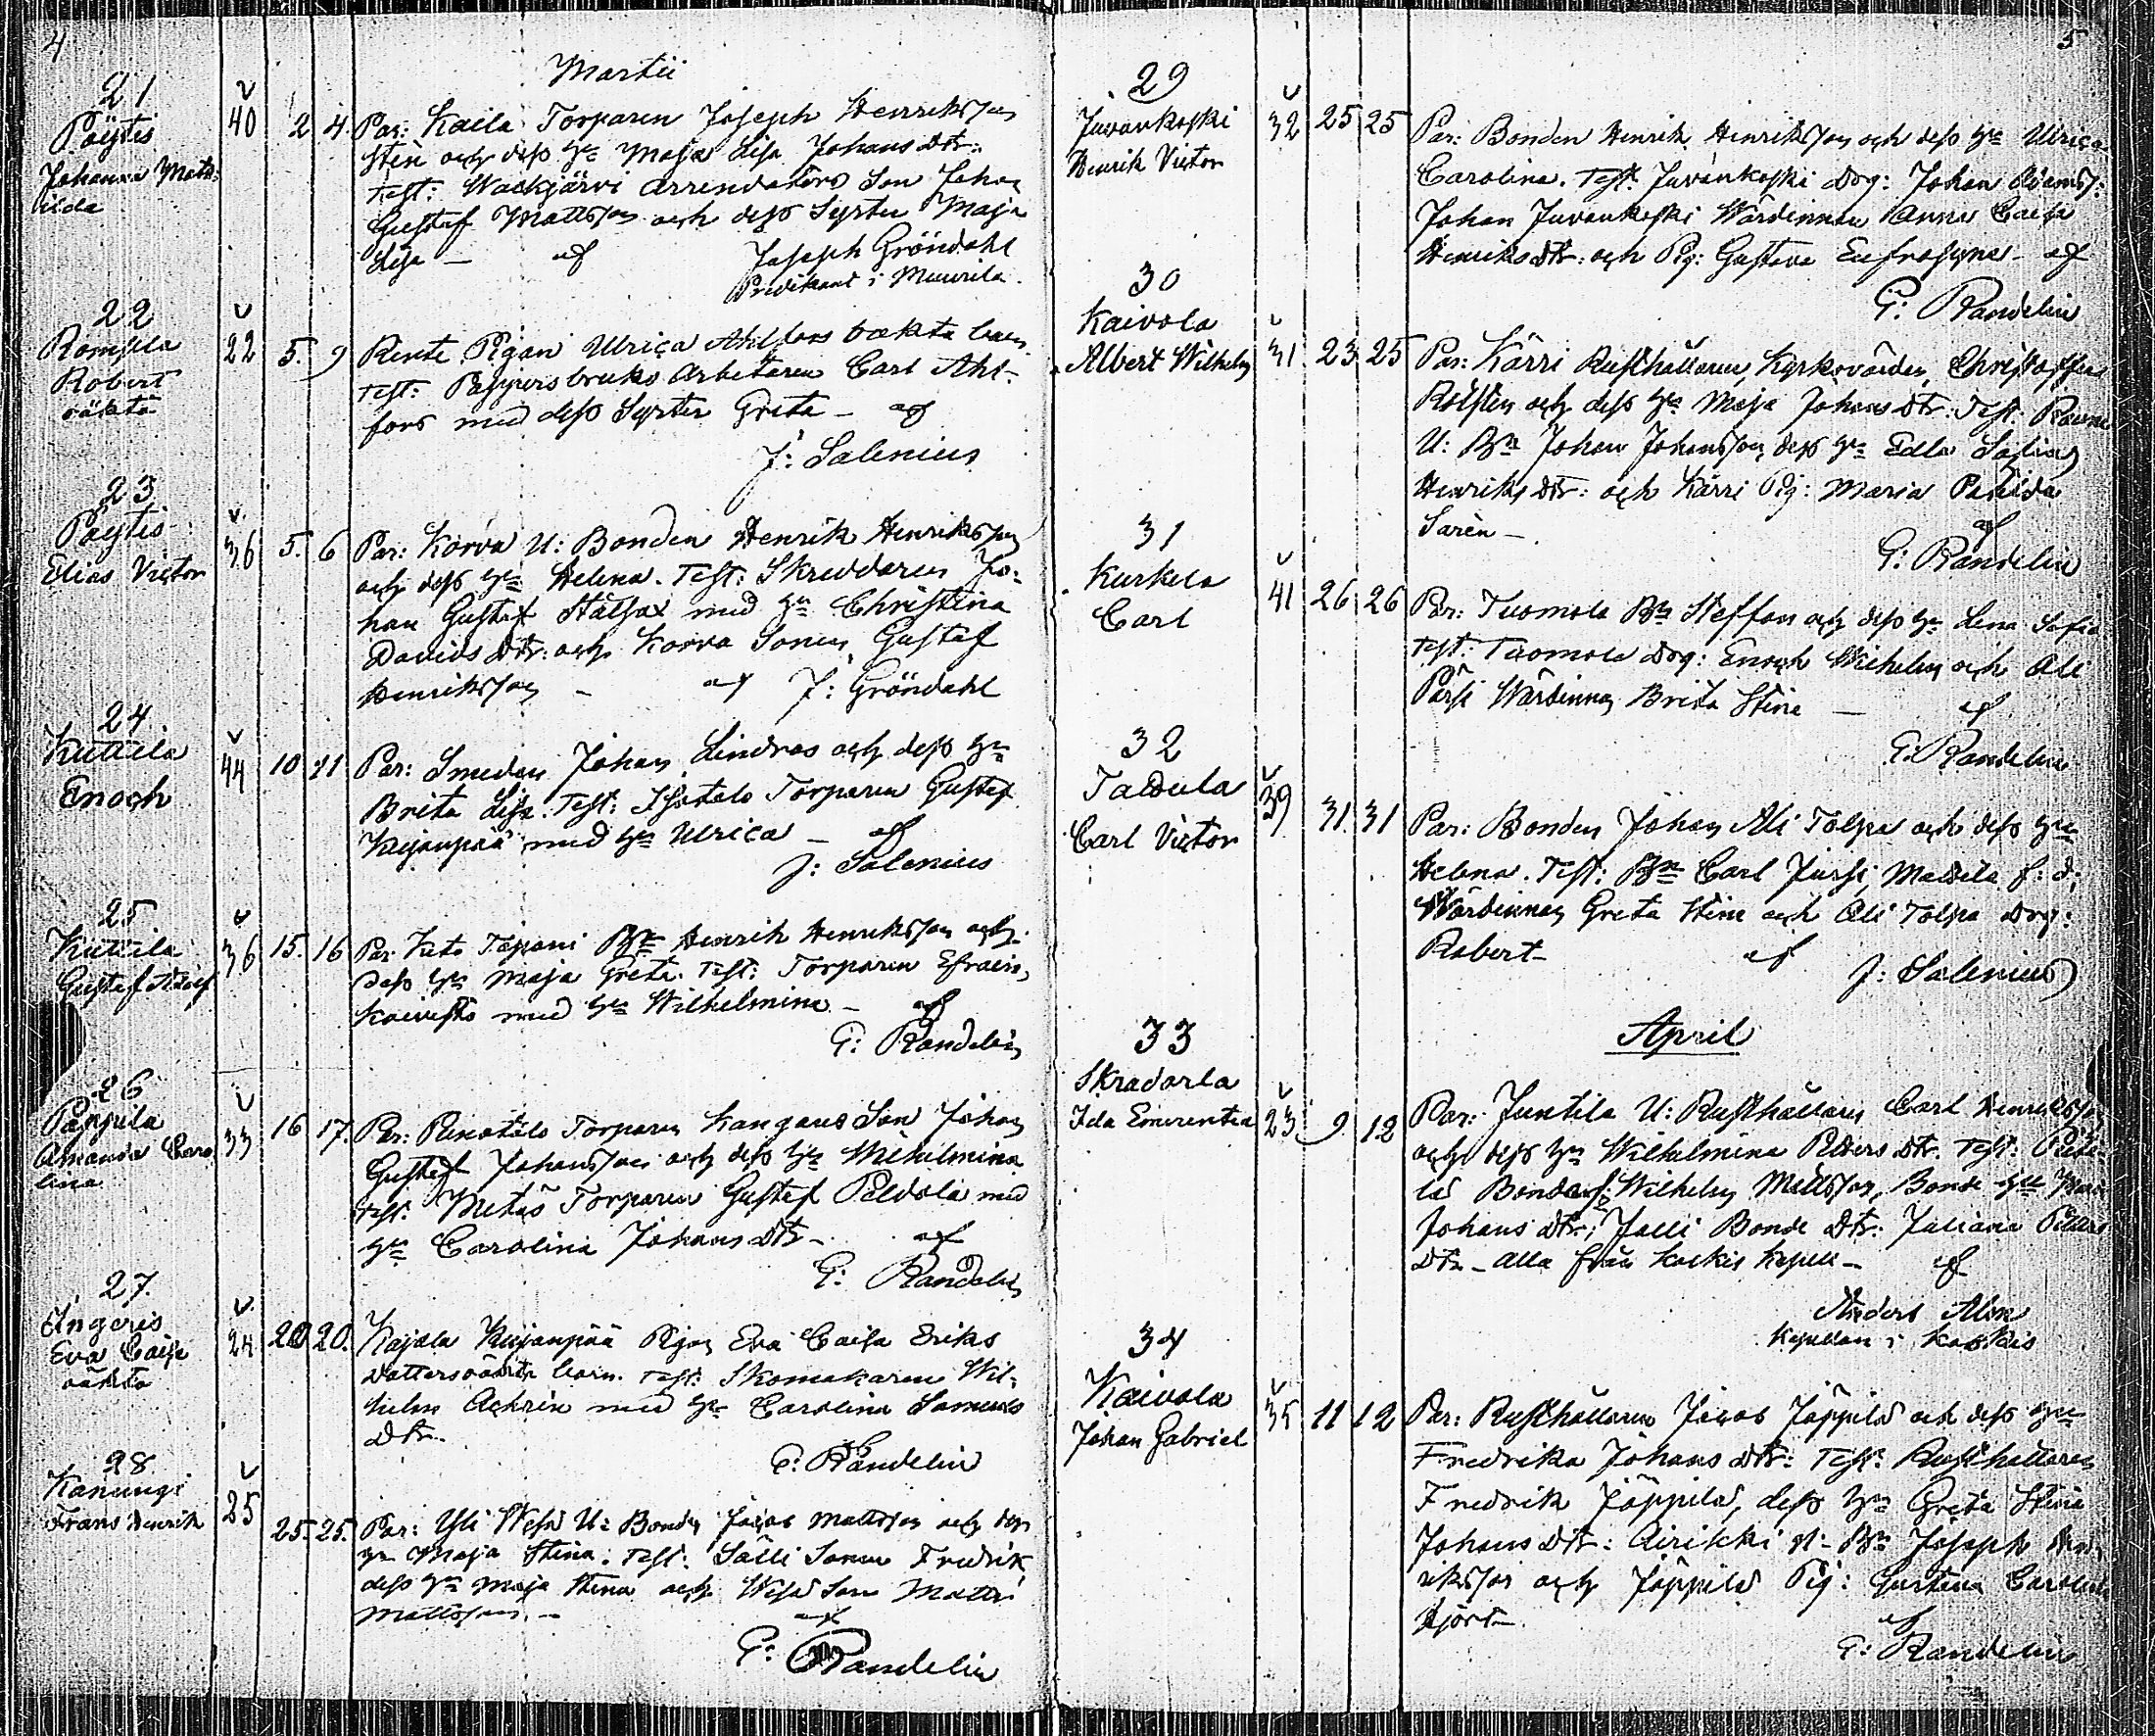 4
Martii
21
Pöytis
Johanna Mathilda
40 2 4. Par: Kaila Torparen Joseph Henriksson
Sten och dess Hu Maja Lisa Johans Dtr:
Test: Wackjärvi Arrendators Son Johan
Gustaf Mattsson och dess Syster Maja
Lisa — af Joseph Gröndahl
Predikant i Murila.
22
Robert
oäkta
22 5. 9 Pigan Ulrica Ahlfors oäkta barn.
Test: Pappersbruks Arbetaren Carl Ahl-
fors med dess Syster Greta — af
J: Salenius
23
Pöytis
Elias Victor
36 5. 6 Par: Korva U: Bonden Henrik Henriksson
och dess Hu Helena. Test: Skreddaren Jo-
han Gustaf med Hu Christina
Davids Dtr: och Korva Sonen Gustaf
Henriksson — af J: Gröndahl
24
Kuttila
Enoch
44 10 11 Par: Smeden Johan Lindros och dess Hu
Brita Lisa. Test: Isotalo Torparen Gustaf
Kujanpää med Hu Ulrica — af
J: Salenius
25
Kuttila
Gustaf Adolf
36 15. 16 Par: Bn Henrik Henriksson och
dess Hu Maja Greta. Test: Torparen Efraim
Koivisto med Hu Wilhelmina — af
G: Randelin
26
Pappila
Amanda Caro
lina
33 16 17. Par: Torparen Kangans Son Johan
Gustaf Johansson och dess Hu Wilhelmina
Test. Torparen Gustaf Peldola med
Hu Carolina Johans Dtr — af
G: Randelin
27.
Ängeris
Eva Caisa
oäkta
24 20 20. Kujanpää Pigan Eva Caisa Eriks
Dotters oäkta barn. Test: Skomakaren Wil-
helm med Hu Carolina Samuels
Dtr. af
G: Randelin
28
Kanungi
Frans Henrik
25 25. 25. Par: Yli U: Bonden Jacob Mattsson och dess
Hu Maja Stina. Test: Sälli Sonen Fredrik,
dess Hu Maja Stina och Son Matts
Mattsson. — af
G: Randelin
5
29
Juvankoski
Henrik Victor
32 25 25 Par: Bonden Henrik Henriksson och dess Hu Ulrica
Carolina. Test: Juvankoski Drg: Johan Adamss:
Johan Juvankoski Wärdinnan Anna Caisa
Henriks Dtr: och Pig: Gustava Eufrosyna — af
G. Randelin
30
Kaivola
Albert Wilhelm
31. 23 25 Par: Kärri Rusthållaren, Kyrkovärden, Christoffer
och dess Hu Maja Johans Dtr: Test.
U: Bn Johan Johansson, dess Hu Edla Sofia
Henriks Dtr: och Kärri Pig: Maria
Sarén — af
G: Randelin
31
Kurkela
Carl
41 26 26 Par: Tuomola Bn Steffan och dess Hu Lena Sofia
Test: Tuomola Drg: Enoch Wilhelm och Ali
Wärdinnan Brita Stina — af
G: Randelin
32
Taldula
Carl Victor
39 31. 31 Par: Bonden Johan Ali Tolpa och dess Hu
Helena. Test: Bn Carl f: d:
Wärdinnan Greta Stina och Ali Tolpa Drg:
Robert — af
J: Salenius
April
33
Skradarla
Ida Emerentia
23. 9. 12 Par: Juntila U: Rusthållaren Carl Henriksson
och dess Hu Wilhelmina Petters Dtr. Test:
Wilhelm Mattsson, Bonde Hu
Johans Dtr; Jalli Bonde Dtr: Juliana Petters
Dtr — alla från Koskis Kapell — af
Anders Alm
Kapellan i Koskis
34
Kaivola
Johan Gabriel
35 11 12 Par: Rusthållaren Jacob Jäppilä och dess Hu
Fredrika Johans Dtr: Test: Rusthållaren
Fredrik Jäppilä, dess Hu Greta Stina
Johans Dtr: Airikki N: Bn Joseph Hen-
riksson och Jäppilä Pig: Gustava Carolina
Hjort — af
G: Randelin